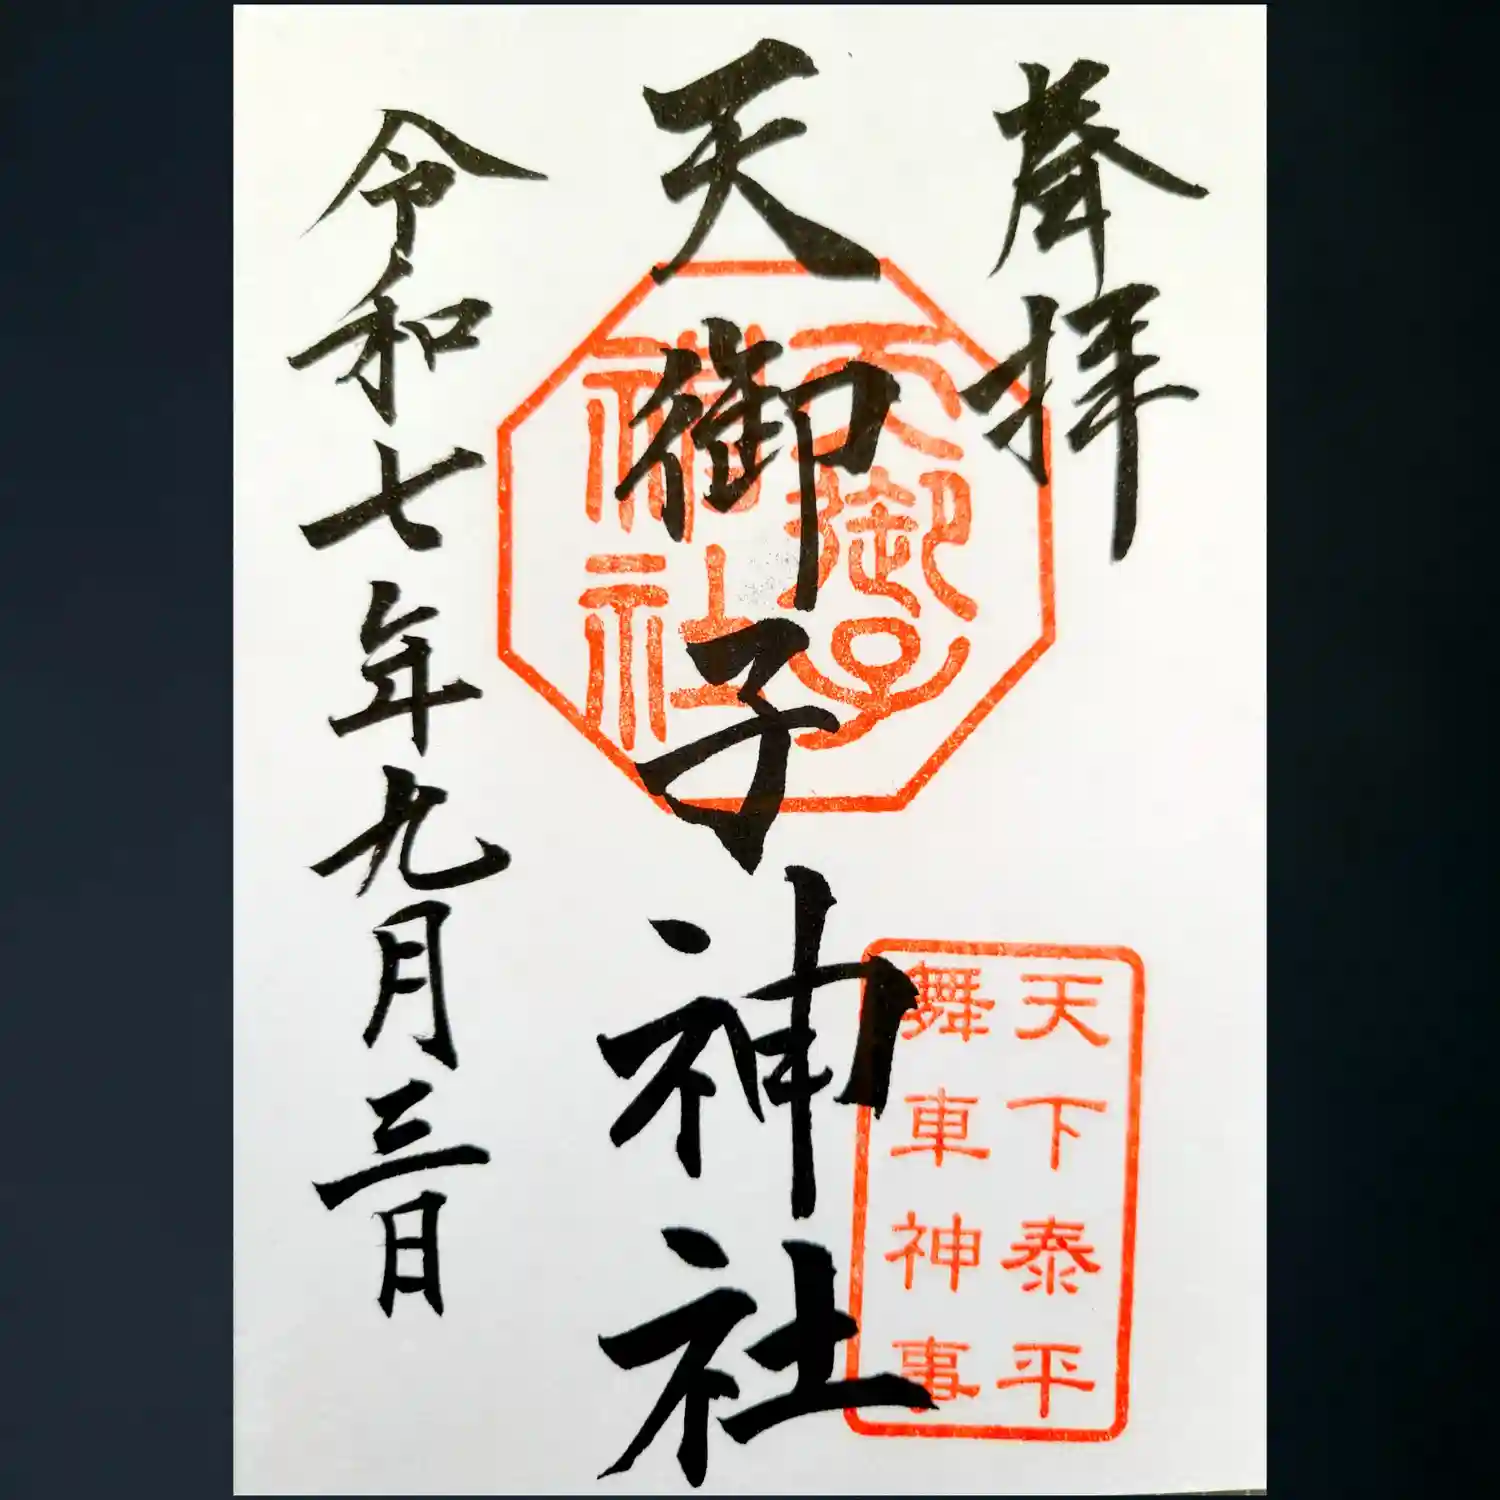 奉拝
天御子神社
令和七年九月三日
天御子
神社
天下泰平
舞車神事